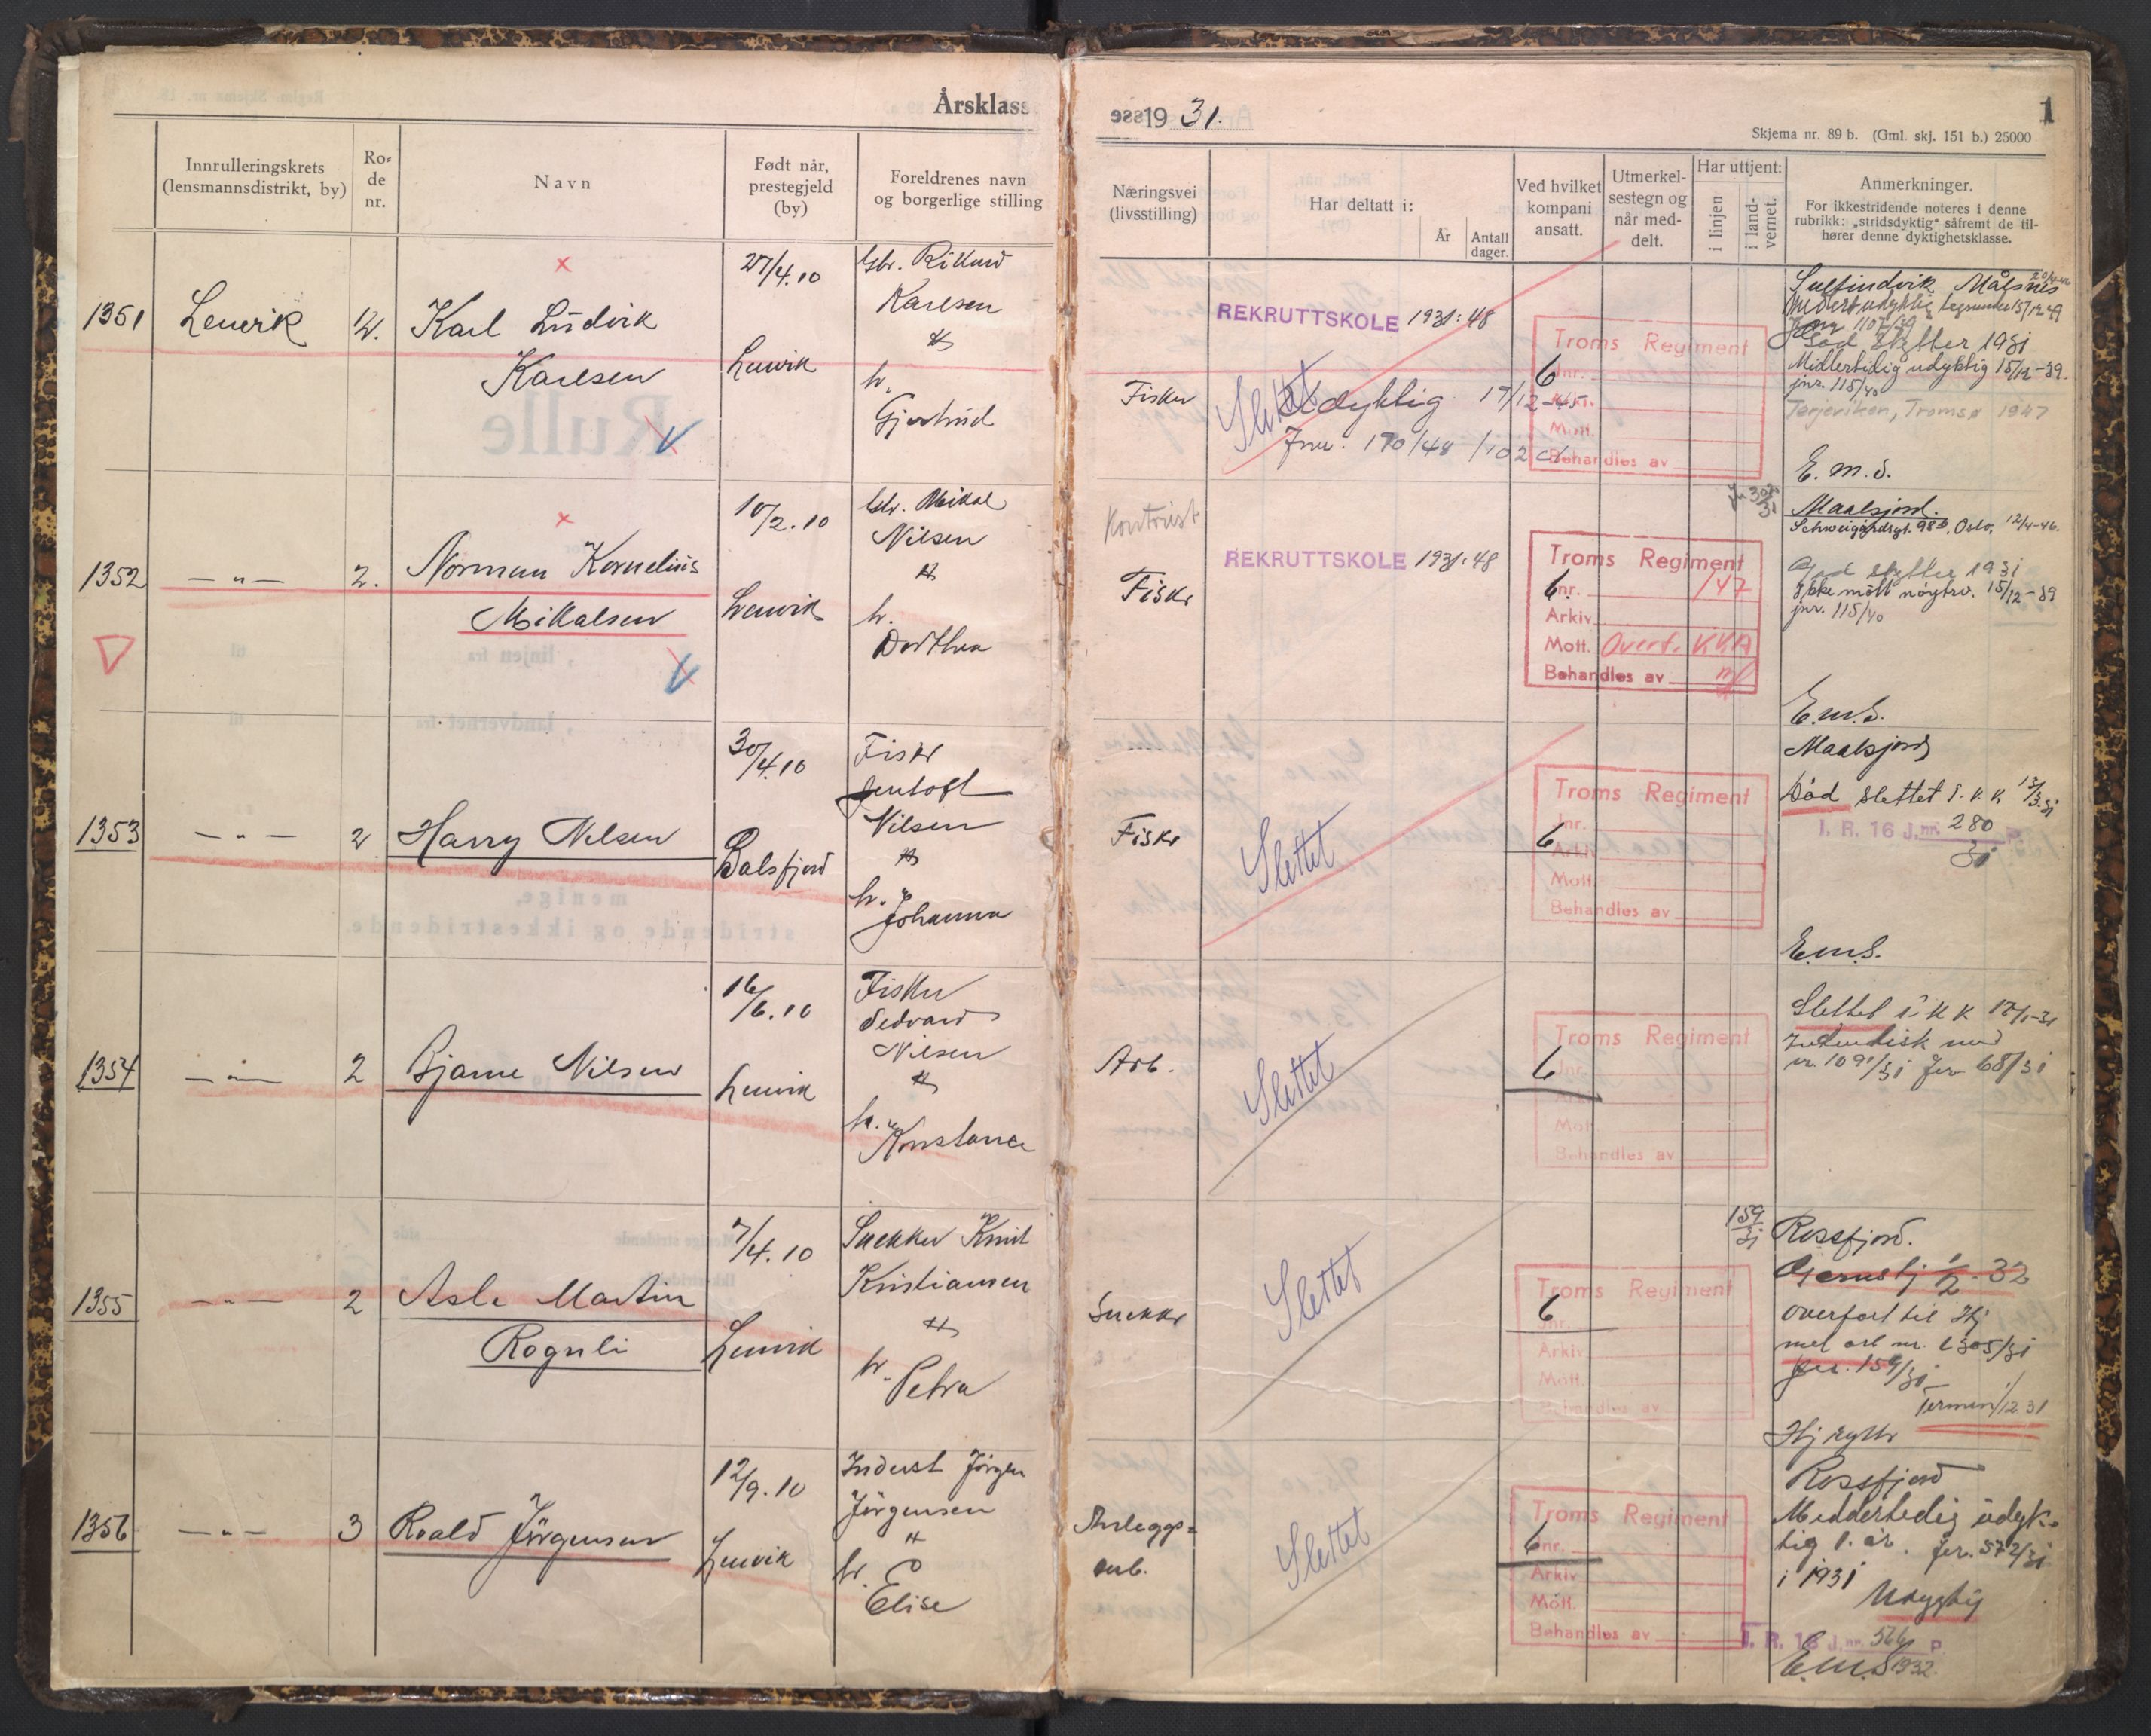 Årsklasse 1931.
1
Skjema nr. 89 b. (Gml. skj. 151 b.) 25000
Innrulleringskrets
(lensmannsdistrikt, by)
Ro-
de
nr.
Navn
Født når,
prestegjeld
(by)
Foreldrenes navn
og borgerlige stilling
Næringsvei
(livsstilling)
Har deltatt i:
År
Antall
dager.
Ved hvilket
kompani
ansatt.
Utmerkel-
sestegn og
når med-
delt.
Har uttjent:
i linjen
i land-
vernet.
Anmerkninger.
For ikkestridende noteres i denne
rubrikk: „stridsdyktig“ såfremt de til-
hører denne dyktighetsklasse.
1351
Lenvik
2.
Karl Ludvik
Karlsen
27/4.10
Lenvik
Gbr. Rikard
Karlsen
h.
Gjertrud
Fisker
REKRUTTSKOLE 1931: 48
Slettet
Udyktig 17/12-45
Jnr. 170/48
Troms Regiment
6
Jnr.
Mott.
Behandles av
Målsnes
God skytter 1931
Midlertidig udyktig 15/12-39.
jnr. 115/40
Tromsø 1947
E.m.S.
1352
— „ —
2.
Norman Kornelius
Mikalsen
10/2.10
Lenvik
Gbr. Mikal
Nilsen
h.
Dorthea
Kontorist
Fisker
REKRUTTSKOLE 1931: 48
Troms Regiment
6.
Jnr. 147
Arkiv
Mott. Overf. KKA
Behandles av
Maalsjord.
Schweigårdsgt. 98b, Oslo, 12/4-46.
God skytter 1931
Ikke møtt nøytrv. 15/12-39
jnr. 115/40
E.m.S.
1353
— „ —
2
Harry Nilsen
30/4.10
Balsfjord
Fisker
Jentoft
Nilsen
h.
Johanna
Fisker
Slettet
Troms Regiment
Jnr.
6
Arkiv
Mott.
Behandles av
Maalsjord
Død slettet i. K K 13/3.31
I. R. 16 J.nr. 280 P.
31
E.m.S.
1354
— „ —
2
Bjarne Nilsen
16/6.10
Lenvik
Fisker
Sedvard
Nilsen
h.
Konstance
Arb.
Slettet
Troms Regiment
Jnr.
6
Mott.
Behandles av
Slettet i K K
nr. 1091/31 Jnr 68/31
1355
— „ —
2
Asle Martin
Rognli
7/4.10
Lenvik
Snekker Knut
Kristiansen
h.
Petra
Snekker
Slettet
Troms Regiment
6
Jnr.
Arkiv
Mott.
Behandles av
159/31
Rossfjord.
overført til Hj
Jnr. 159/31
Termin 1/12 31
1356
— „ —
3
Roald Jörgensen
12/9.10
Lenvik
Inderst Jörgen
Jörgensen
h.
Elise
Anleggs-
arb.
Slettet
Troms Regiment
6
Jnr.
Arkiv
Mott.
Behandles av
Rossfjord
Midlertidig udyk-
tig 1. år. Jnr. 572/31
i 1931
Udygtig
I. R. 16 J.nr. 566 P
E.m.S 1932.